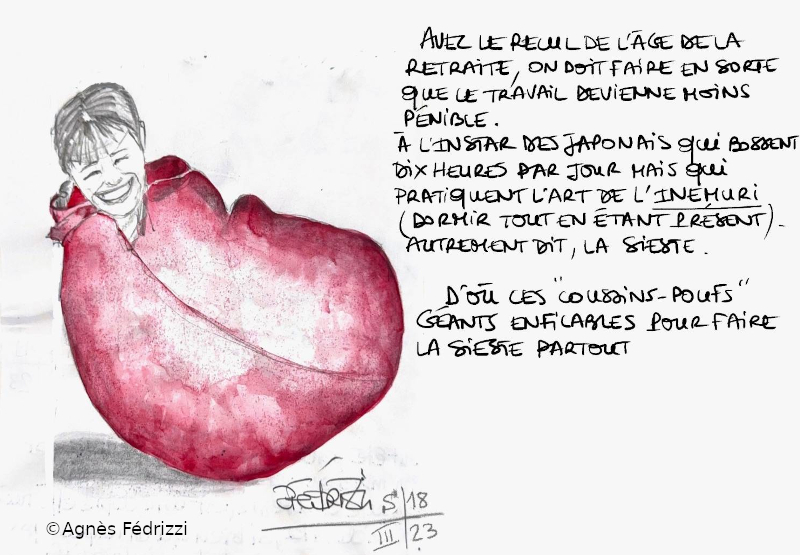 AVEC LE RECUL DE L'ÂGE DE LA
RETRAITE, ON DOIT FAIRE EN SORTE
QUE LE TRAVAIL DEVIENNE MOINS
PÉNIBLE.
À L'INSTAR DES JAPONAIS QUI BOSSENT
DIX HEURES PAR JOUR MAIS QUI
PRATIQUENT L'ART DE L'INEMURI
(DORMIR TOUT EN ÉTANT PRÉSENT).
AUTREMENT DIT, LA SIESTE.
D'OÙ CES "COUSSINS-POUFS"
GÉANTS ENFILABLES POUR FAIRE
LA SIESTE PARTOUT
S 18
III 23
©Agnès Fédrizzi